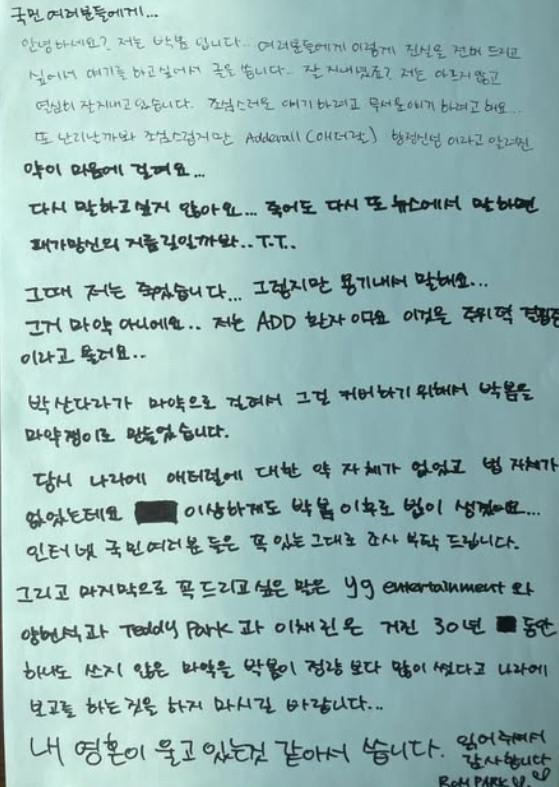 국민 여러분들에게...
안녕하세요? 저는 박봄 입니다... 여러분들에게 이렇게 진실을 전해 드리고
싶어서 얘기를 하고싶어서 글을 씁니다.. 잘 지내셨죠? 저는 아프지 않고
열심히 잘지내고 있습니다. 조심스러운 얘기 하려고 무서운얘기 하려고 해요...
또 난리날까봐 조심스럽지만 Adderall (애더럴) 향정신성 이라고 알려진
약이 마음에 걸려요...
다시 말하고싶지 않아요... 죽어도 다시 또 뉴스에서 말하면
패가망신의 지름길일까봐..T.T..
그때 저는 죽었습니다... 그렇지만 용기내서 말해요...
그거 마약 아니에요.. 저는 ADD 환자 에요 이것을 주위력 결핍증
이라고 불러요..
박산다라가 마약으로 걸려서 그걸 커버하기 위해서 박봄을
마약쟁이로 만들었습니다.
당시 나라에 애터럴에 대한 약 자체가 없었고 법 자체가
없었는데요 이상하게도 박봄 이후로 법이 생겼어요...
인터넷 국민여러분 들은 꼭 있는그대로 조사 부탁 드립니다.
그리고 마지막으로 꼭 드리고 싶은 말은 yg entertainment 와
양현석과 Teddy Park 과 이채린은 거진 30년 동안
하나도 쓰지 않은 마약을 박봄이 정량 보다 많이 썼다고 나라에
보고를 하는것을 하지 마시길 바랍니다...
내 영혼이 울고 있는것 같아서 씁니다. 읽어주셔서
감사합니다
BOM PARK